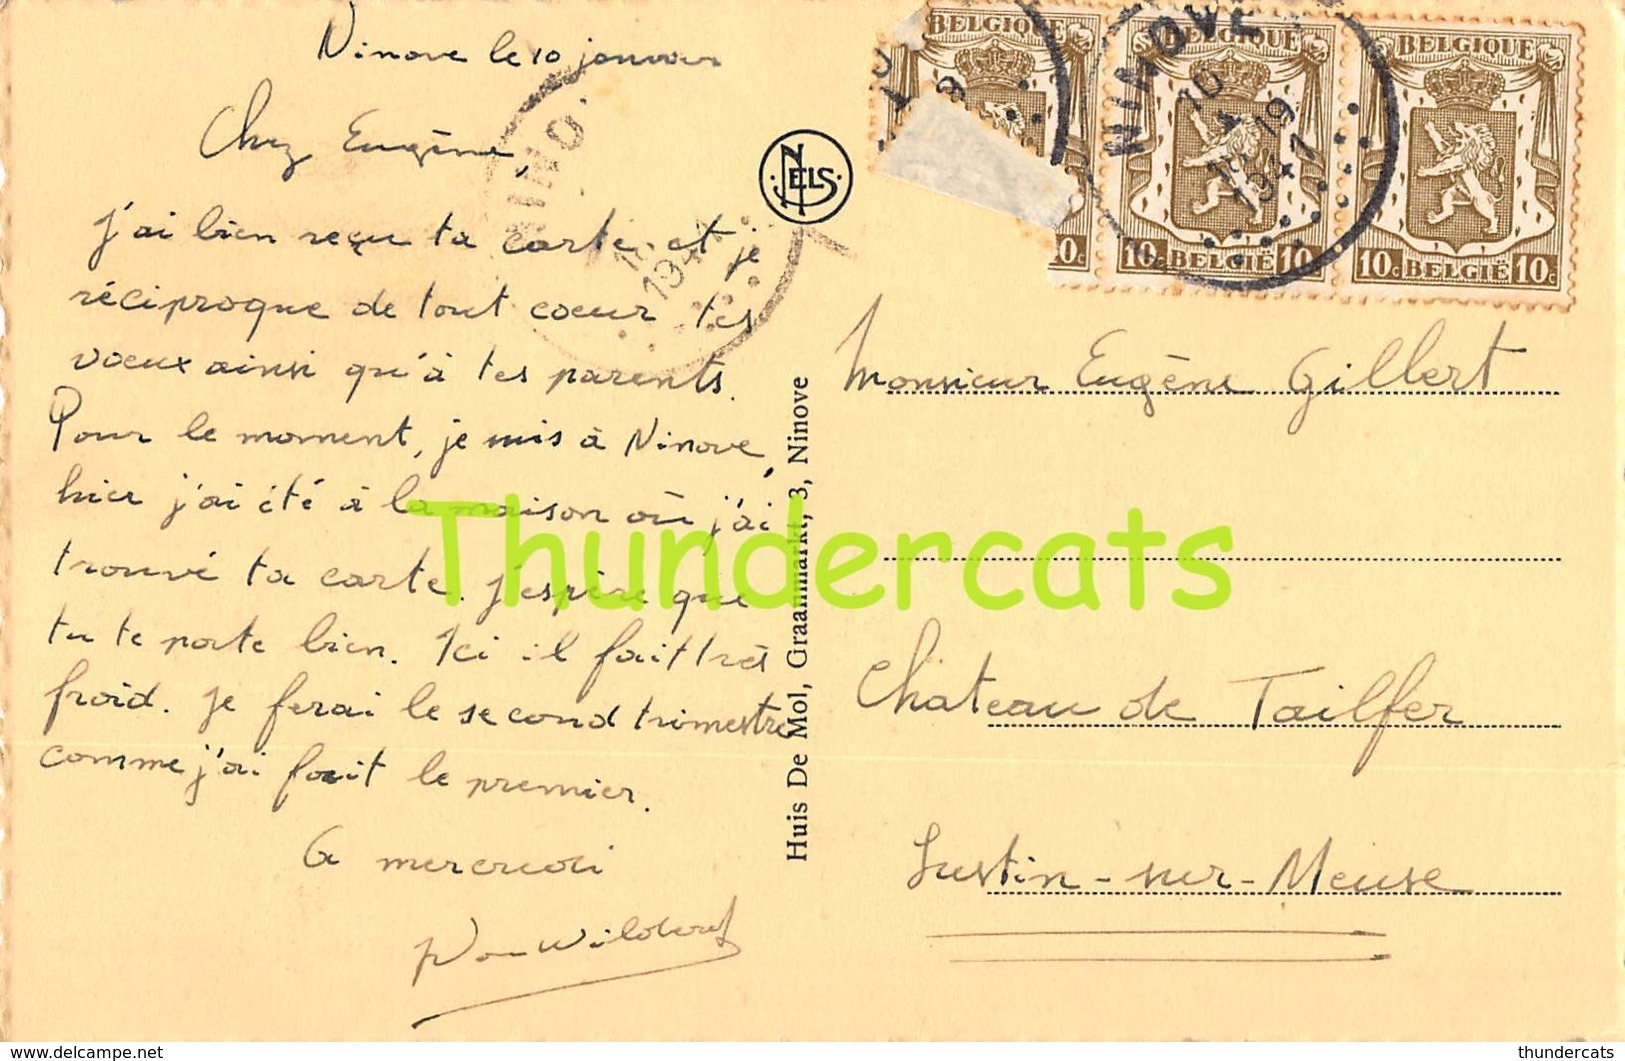 Ninove le 10 janvier
Cher Eugène,
j'ai bien reçu ta carte et je
réciproque de tout coeur tes
voeux ainsi qu'à tes parents.
Pour le moment, je suis à Ninove,
hier j'ai été à la maison où j'ai
trouvé ta carte. j'espère que
tu te porte bien. Ici il fait très
froid. Je ferai le second trimestre
comme j'ai fait le premier.
A mercredi
NELS
Huis De Mol, Graanmarkt, 3, Ninove
BELGIQUE
BELGIQUE
BELGIQUE
10c BELGIË 10c
10c BELGIË 10c
NINOVE
10 1 19
1941
Monsieur Eugène Gillert
Château de Tailfer
Lustin-sur-Meuse
Thundercats
delcampe.net
thundercats